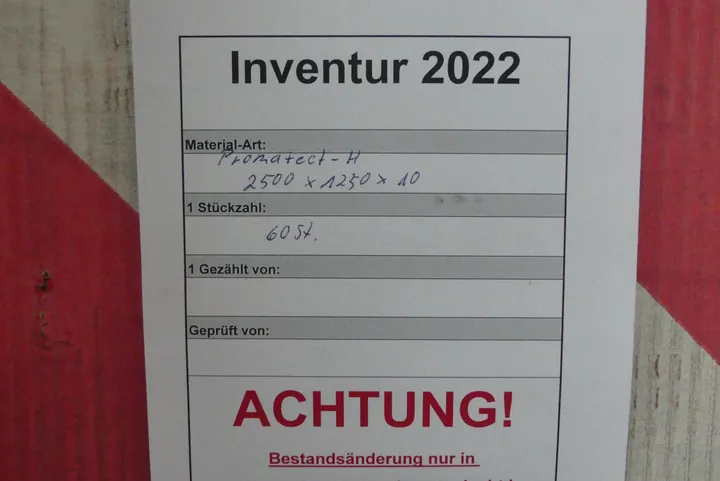 Inventur 2022
Material-Art:
Promatect-H
2500 x 1250 x 10
1 Stückzahl:
60 St.
1 Gezählt von:
Geprüft von:
ACHTUNG!
Bestandsänderung nur in